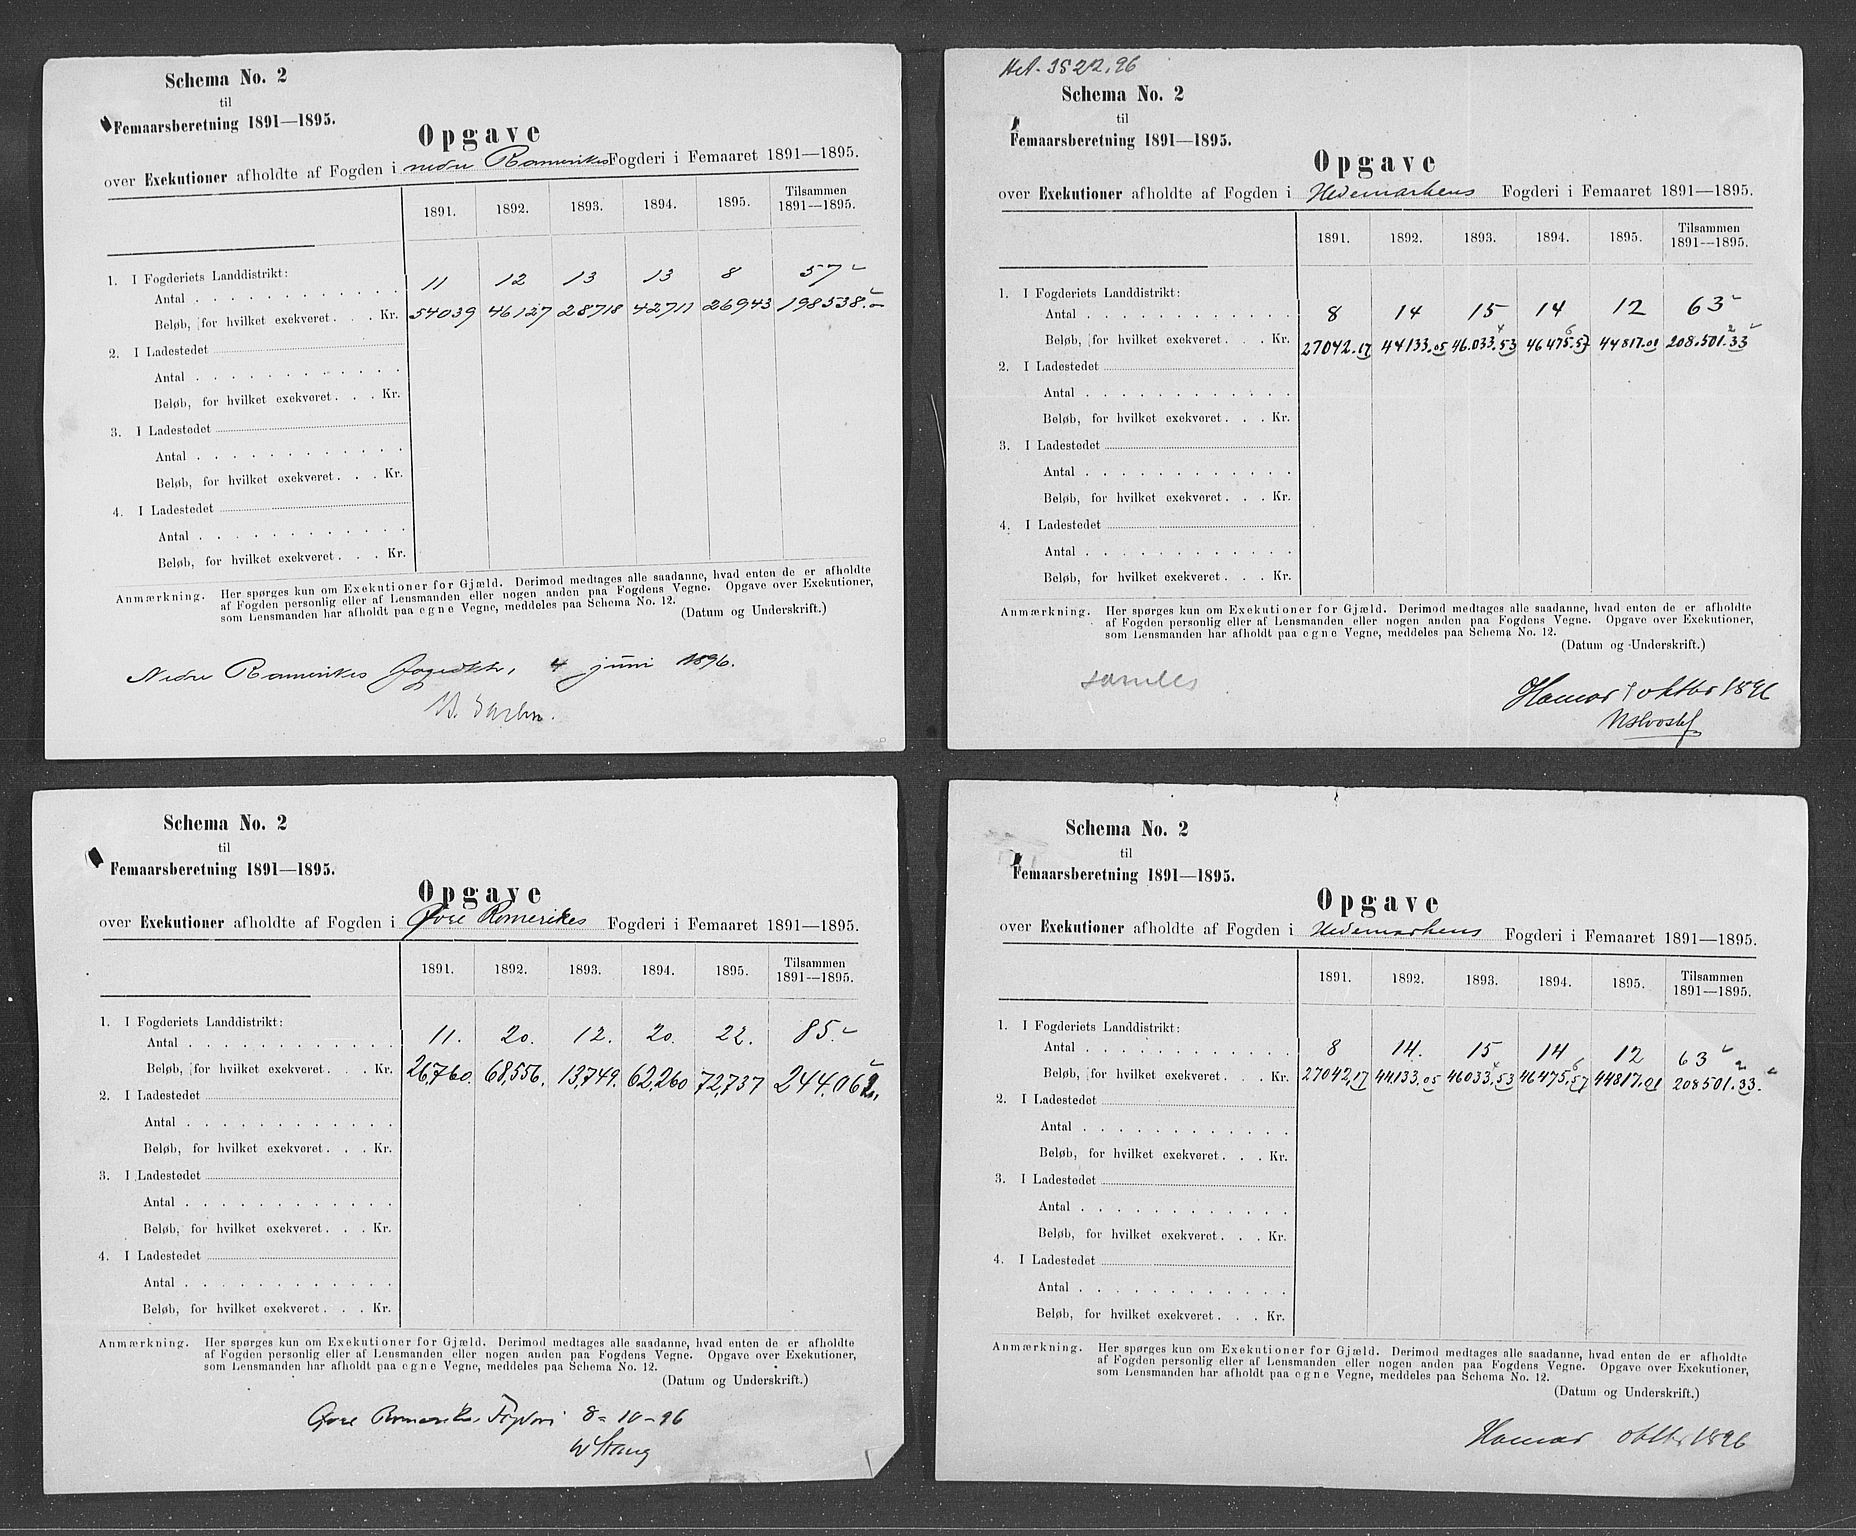 Schema No. 2
til
Femaarsberetning 1891—1895.
Opgave
over Exekutioner afholdte af Fogden i nedre Romerikes Fogderi i Femaaret 1891—1895.
1891. 1892. 1893. 1894. 1895. Tilsammen 1891—1895.
1. I Fogderiets Landdistrikt:
Antal . . . 11 12 13 13 8 57
Beløb, for hvilket exekveret . . . Kr. 54039 46127 28718 42711 26943 198538.
2. I Ladestedet
Antal
Beløb, for hvilket exekveret . . . Kr.
3. I Ladestedet
Antal
Beløb, for hvilket exekveret . . . Kr.
4. I Ladestedet
Antal
Beløb, for hvilket exekveret . . . Kr.
Anmærkning. Her spørges kun om Exekutioner for Gjæld. Derimod medtages alle saadanne, hvad enten de er afholdte
af Fogden personlig eller af Lensmanden eller nogen anden paa Fogdens Vegne. Opgave over Exekutioner,
som Lensmanden har afholdt paa egne Vegne, meddeles paa Schema No. 12.
(Datum og Underskrift.)
Nedre Romerikes 4 juni 1896.
Schema No. 2
til
Femaarsberetning 1891—1895.
Opgave
over Exekutioner afholdte af Fogden i Hedemarkens Fogderi i Femaaret 1891—1895.
1891. 1892. 1893. 1894. 1895. Tilsammen 1891—1895.
1. I Fogderiets Landdistrikt:
Antal . . . 8 14 15 14 12 63
4 6 2
Beløb, for hvilket exekveret . . . Kr. 27042.17 44133.05 46.033.53 46475.57 44817.01 208.501.33
2. I Ladestedet
Antal
Beløb, for hvilket exekveret . . . Kr.
3. I Ladestedet
Antal
Beløb, for hvilket exekveret . . . Kr.
4. I Ladestedet
Antal
Beløb, for hvilket exekveret . . . Kr.
Anmærkning. Her spørges kun om Exekutioner for Gjæld. Derimod medtages alle saadanne, hvad enten de er afholdte
af Fogden personlig eller af Lensmanden eller nogen anden paa Fogdens Vegne. Opgave over Exekutioner,
som Lensmanden har afholdt paa egne Vegne, meddeles paa Schema No. 12.
(Datum og Underskrift.)
samles
Hamar oktbr 1896
Schema No. 2
til
Femaarsberetning 1891—1895.
Opgave
over Exekutioner afholdte af Fogden i Øvre Romerikes Fogderi i Femaaret 1891—1895.
1891. 1892. 1893. 1894. 1895. Tilsammen 1891—1895.
1. I Fogderiets Landdistrikt:
Antal . . . 11. 20. 12. 20. 22. 85.
Beløb, for hvilket exekveret . . . Kr. 26,760. 68,556. 13,749. 62,260 72,737 244.062.
2. I Ladestedet
Antal
Beløb, for hvilket exekveret . . . Kr.
3. I Ladestedet
Antal
Beløb, for hvilket exekveret . . . Kr.
4. I Ladestedet
Antal
Beløb, for hvilket exekveret . . . Kr.
Anmærkning. Her spørges kun om Exekutioner for Gjæld. Derimod medtages alle saadanne, hvad enten de er afholdte
af Fogden personlig eller af Lensmanden eller nogen anden paa Fogdens Vegne. Opgave over Exekutioner,
som Lensmanden har afholdt paa egne Vegne, meddeles paa Schema No. 12.
(Datum og Underskrift.)
Øvre Romerikes Fogderi 8-10-96
W Stang
Schema No. 2
til
Femaarsberetning 1891—1895.
Opgave
over Exekutioner afholdte af Fogden i Hedemarkens Fogderi i Femaaret 1891—1895.
1891. 1892. 1893. 1894. 1895. Tilsammen 1891—1895.
1. I Fogderiets Landdistrikt:
Antal . . . 8 14. 15 14 12 63
4 6 2
Beløb, for hvilket exekveret . . . Kr. 27042,17 44.133.05 46033.53 46475.57 44817.01 208501.33.
2. I Ladestedet
Antal
Beløb, for hvilket exekveret . . . Kr.
3. I Ladestedet
Antal
Beløb, for hvilket exekveret . . . Kr.
4. I Ladestedet
Antal
Beløb, for hvilket exekveret . . . Kr.
Anmærkning. Her spørges kun om Exekutioner for Gjæld. Derimod medtages alle saadanne, hvad enten de er afholdte
af Fogden personlig eller af Lensmanden eller nogen anden paa Fogdens Vegne. Opgave over Exekutioner,
som Lensmanden har afholdt paa egne Vegne, meddeles paa Schema No. 12.
(Datum og Underskrift.)
Hamar oktbr 1896